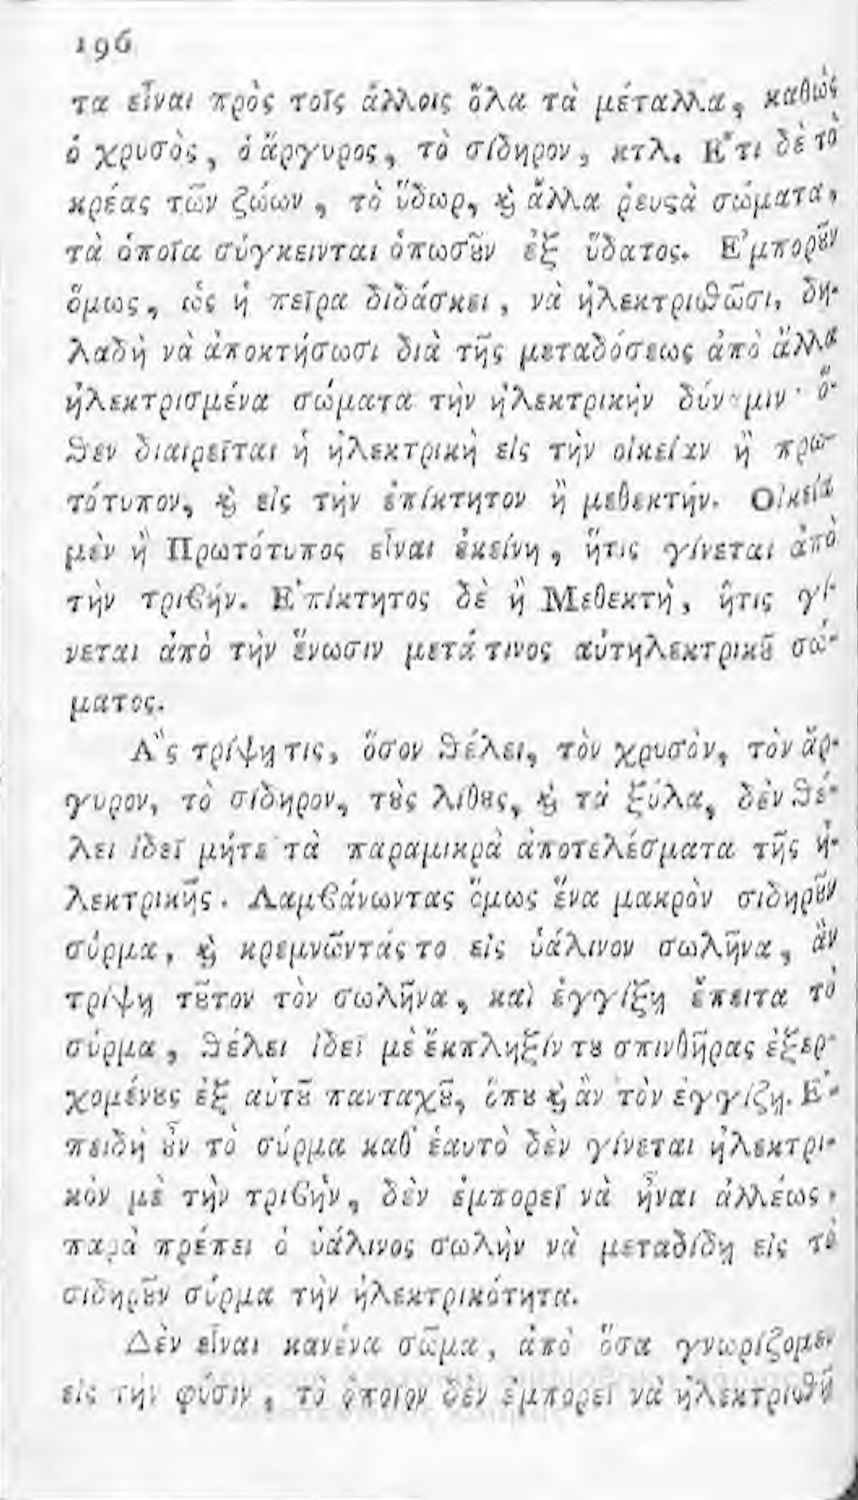 196
τα εἶναι πρὸς τοῖς ἄλλοις ὅλα τὰ μέταλλα, καθὼς
ὁ χρυσὸς, ὁ ἄργυρος, τὸ σίδηρον, κτλ. Ἔτι δὲ τὸ
κρέας τῶν ζώων, τὸ ὕδωρ, ϗ̀ ἄλλα ῥευϛὰ σώματα,
τὰ ὁποῖα σύγκεινται ὁπωσȣ͂ν ἐξ ὕδατος. Ἐμπορȣ͂ν
ὅμως, ὡς ἡ πεῖρα διδάσκει, νὰ ἠλεκτριϑῶσι, δη-
λαδὴ νὰ ἀποκτήσωσι διὰ τῆς μεταδόσεως ἀπὸ ἄλλα
ἠλεκτρισμένα σώματα τὴν ἠλεκτρικὴν δύναμιν· ὅ-
ϑεν διαιρεῖται ἡ ἠλεκτρικὴ εἰς τὴν οἰκείαν ἢ πρω-
τότυπον, ϗ̀ εἰς τὴν ἐπίκτητον ἢ μεθεκτήν. Οἰκεία
μὲν ἢ Πρωτότυπος εἶναι ἐκείνη, ἥτις γίνεται ἀπὸ
τὴν τριβήν. Ἐπίκτητος δὲ ἢ Μεθεκτὴ, ἥτις γί-
νεται ἀπὸ τὴν ἕνωσιν μετά τινος αὐτηλεκτρικȣ͂ σώ-
ματος.
Ἂς τρίψῃ τις, ὅσον ϑέλει, τὸν χρυσὸν, τὸν ἄρ-
γυρον, τὸ σίδηρον, τȣ̀ς λίθȣς, ϗ̀ τὰ ξύλα, δὲν ϑέ-
λει ἰδεῖ μήτε τὰ παραμικρὰ ἀποτελέσματα τῆς ἠ-
λεκτρικῆς. Λαμβάνωντας ὅμως ἕνα μακρὸν σιδηρȣ͂ν
σύρμα, ϗ̀ κρεμνῶντάς το εἰς ὑάλινον σωλῆνα, ἂν
τρίψῃ τȣ͂τον τὸν σωλῆνα, καὶ ἐγγίξῃ ἔπειτα τὸ
σύρμα, ϑέλει ἰδεῖ μὲ ἔκπληξίν τȣ σπινθῆρας ἐξερ-
χομένȣς ἐξ αὐτȣ͂ πανταχȣ͂, ὅπȣ ϗ̀ ἂν τὸν ἐγγίζῃ. Ἐ-
πειδὴ ȣ̓͂ν τὸ σύρμα καθ' ἑαυτὸ δὲν γίνεται ἠλεκτρι-
κὸν μὲ τὴν τριβὴν, δὲν ἐμπορεῖ νὰ ἦναι ἀλλέως,
παρὰ πρέπει ὁ ὑάλινος σωλὴν νὰ μεταδίδῃ εἰς τὸ
σιδηρȣ͂ν σύρμα τὴν ἠλεκτρικότητα.
Δὲν εἶναι κανένα σῶμα, ἀπὸ ὅσα γνωρίζομεν
εἰς τὴν φύσιν, τὸ ὁποῖον δὲν ἐμπορεῖ νὰ ἠλεκτριϑῇ